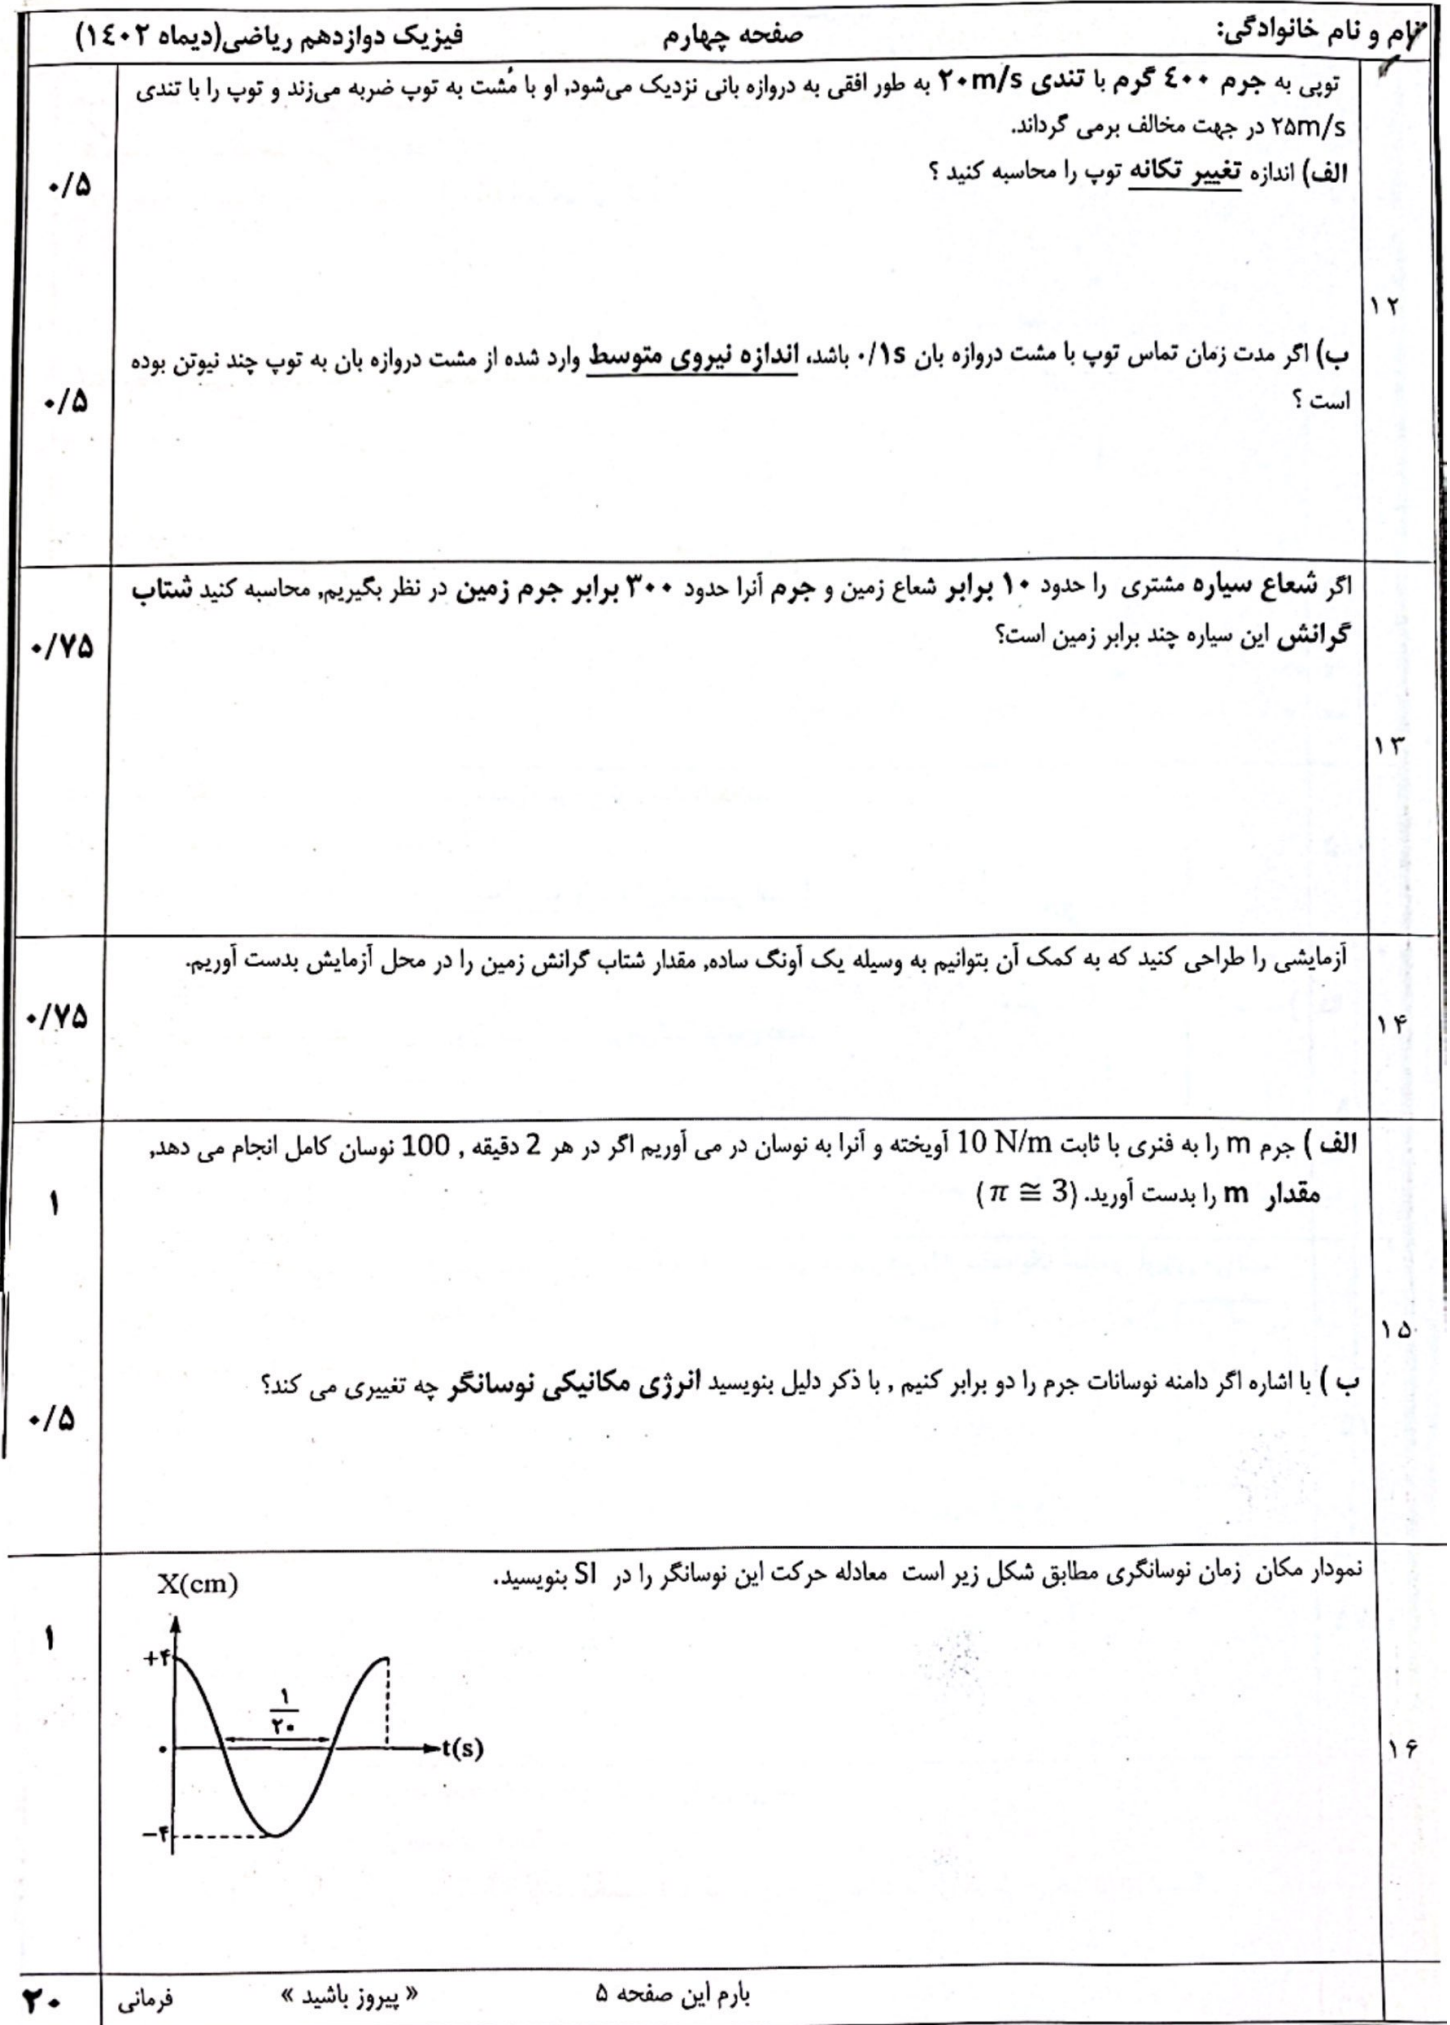 نام و نام خانوادگی: صفحه چهارم فیزیک دوازدهم ریاضی(دیماه ۱٤۰۲)
توپی به جرم ٤۰۰ گرم با تندی ۲۰m/s به طور افقی به دروازه بانی نزدیک می‌شود, او با مُشت به توپ ضربه می‌زند و توپ را با تندی
۲۵m/s در جهت مخالف برمی گرداند.
الف) اندازه تغییر تکانه توپ را محاسبه کنید ؟
۰/۵
۱۲
ب) اگر مدت زمان تماس توپ با مشت دروازه بان ۰/۱s باشد، اندازه نیروی متوسط وارد شده از مشت دروازه بان به توپ چند نیوتن بوده
است ؟
۰/۵
اگر شعاع سیاره مشتری را حدود ۱۰ برابر شعاع زمین و جرم آنرا حدود ۳۰۰ برابر جرم زمین در نظر بگیریم, محاسبه کنید شتاب
گرانش این سیاره چند برابر زمین است؟
۰/۷۵
۱۳
آزمایشی را طراحی کنید که به کمک آن بتوانیم به وسیله یک آونگ ساده, مقدار شتاب گرانش زمین را در محل آزمایش بدست آوریم.
۰/۷۵
۱۴
الف ) جرم m را به فنری با ثابت 10 N/m آویخته و آنرا به نوسان در می آوریم اگر در هر 2 دقیقه , 100 نوسان کامل انجام می دهد,
مقدار m را بدست آورید. (π ≅ 3)
۱
۱۵
ب ) با اشاره اگر دامنه نوسانات جرم را دو برابر کنیم , با ذکر دلیل بنویسید انرژی مکانیکی نوسانگر چه تغییری می کند؟
۰/۵
نمودار مکان زمان نوسانگری مطابق شکل زیر است معادله حرکت این نوسانگر را در SI بنویسید.
۱
X(cm)
+۴
۱
۲۰
۰
t(s)
−۴
۱۶
بارم این صفحه ۵ « پیروز باشید » فرمانی ۲۰